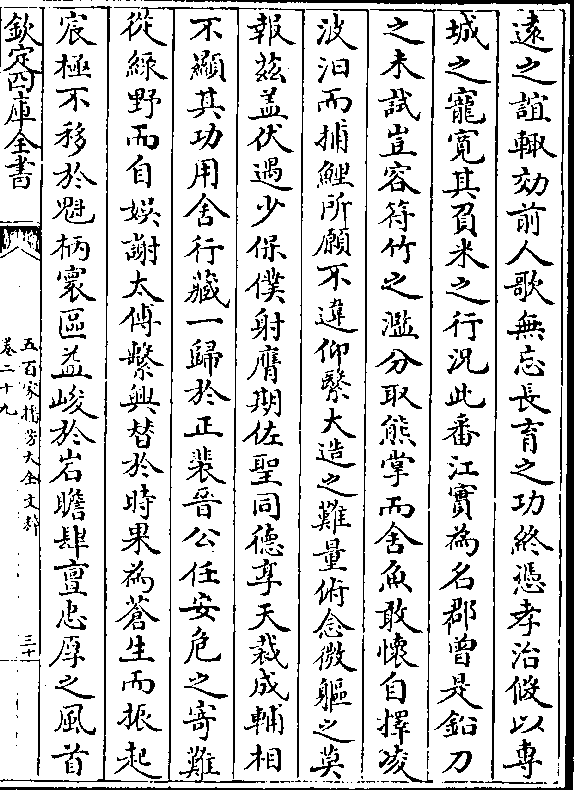 遠之誼輙効前人歌無忘長育之功終憑孝治假以專
城之寵寛其負米之行況此番江實為名郡曽是鉛刀
之未試豈容符竹之濫分取熊掌而舍魚敢懷自擇凌
波汨而捕鯉所願不違仰繄大造之難量術念微軀之莫
報兹盖伏遇少保僕射膺期佐聖同德享天裁成輔相
不顯其功用舍行藏一歸於正裴晉公任安危之寄難
從緑野而自娱謝太傅繫興替於時果為蒼生而振起
宸極不移於魁柄寰區益峻於岩瞻肆亶忠厚之風首
欽定四庫全書
五百家播芳大全文粹
卷二十九
三十